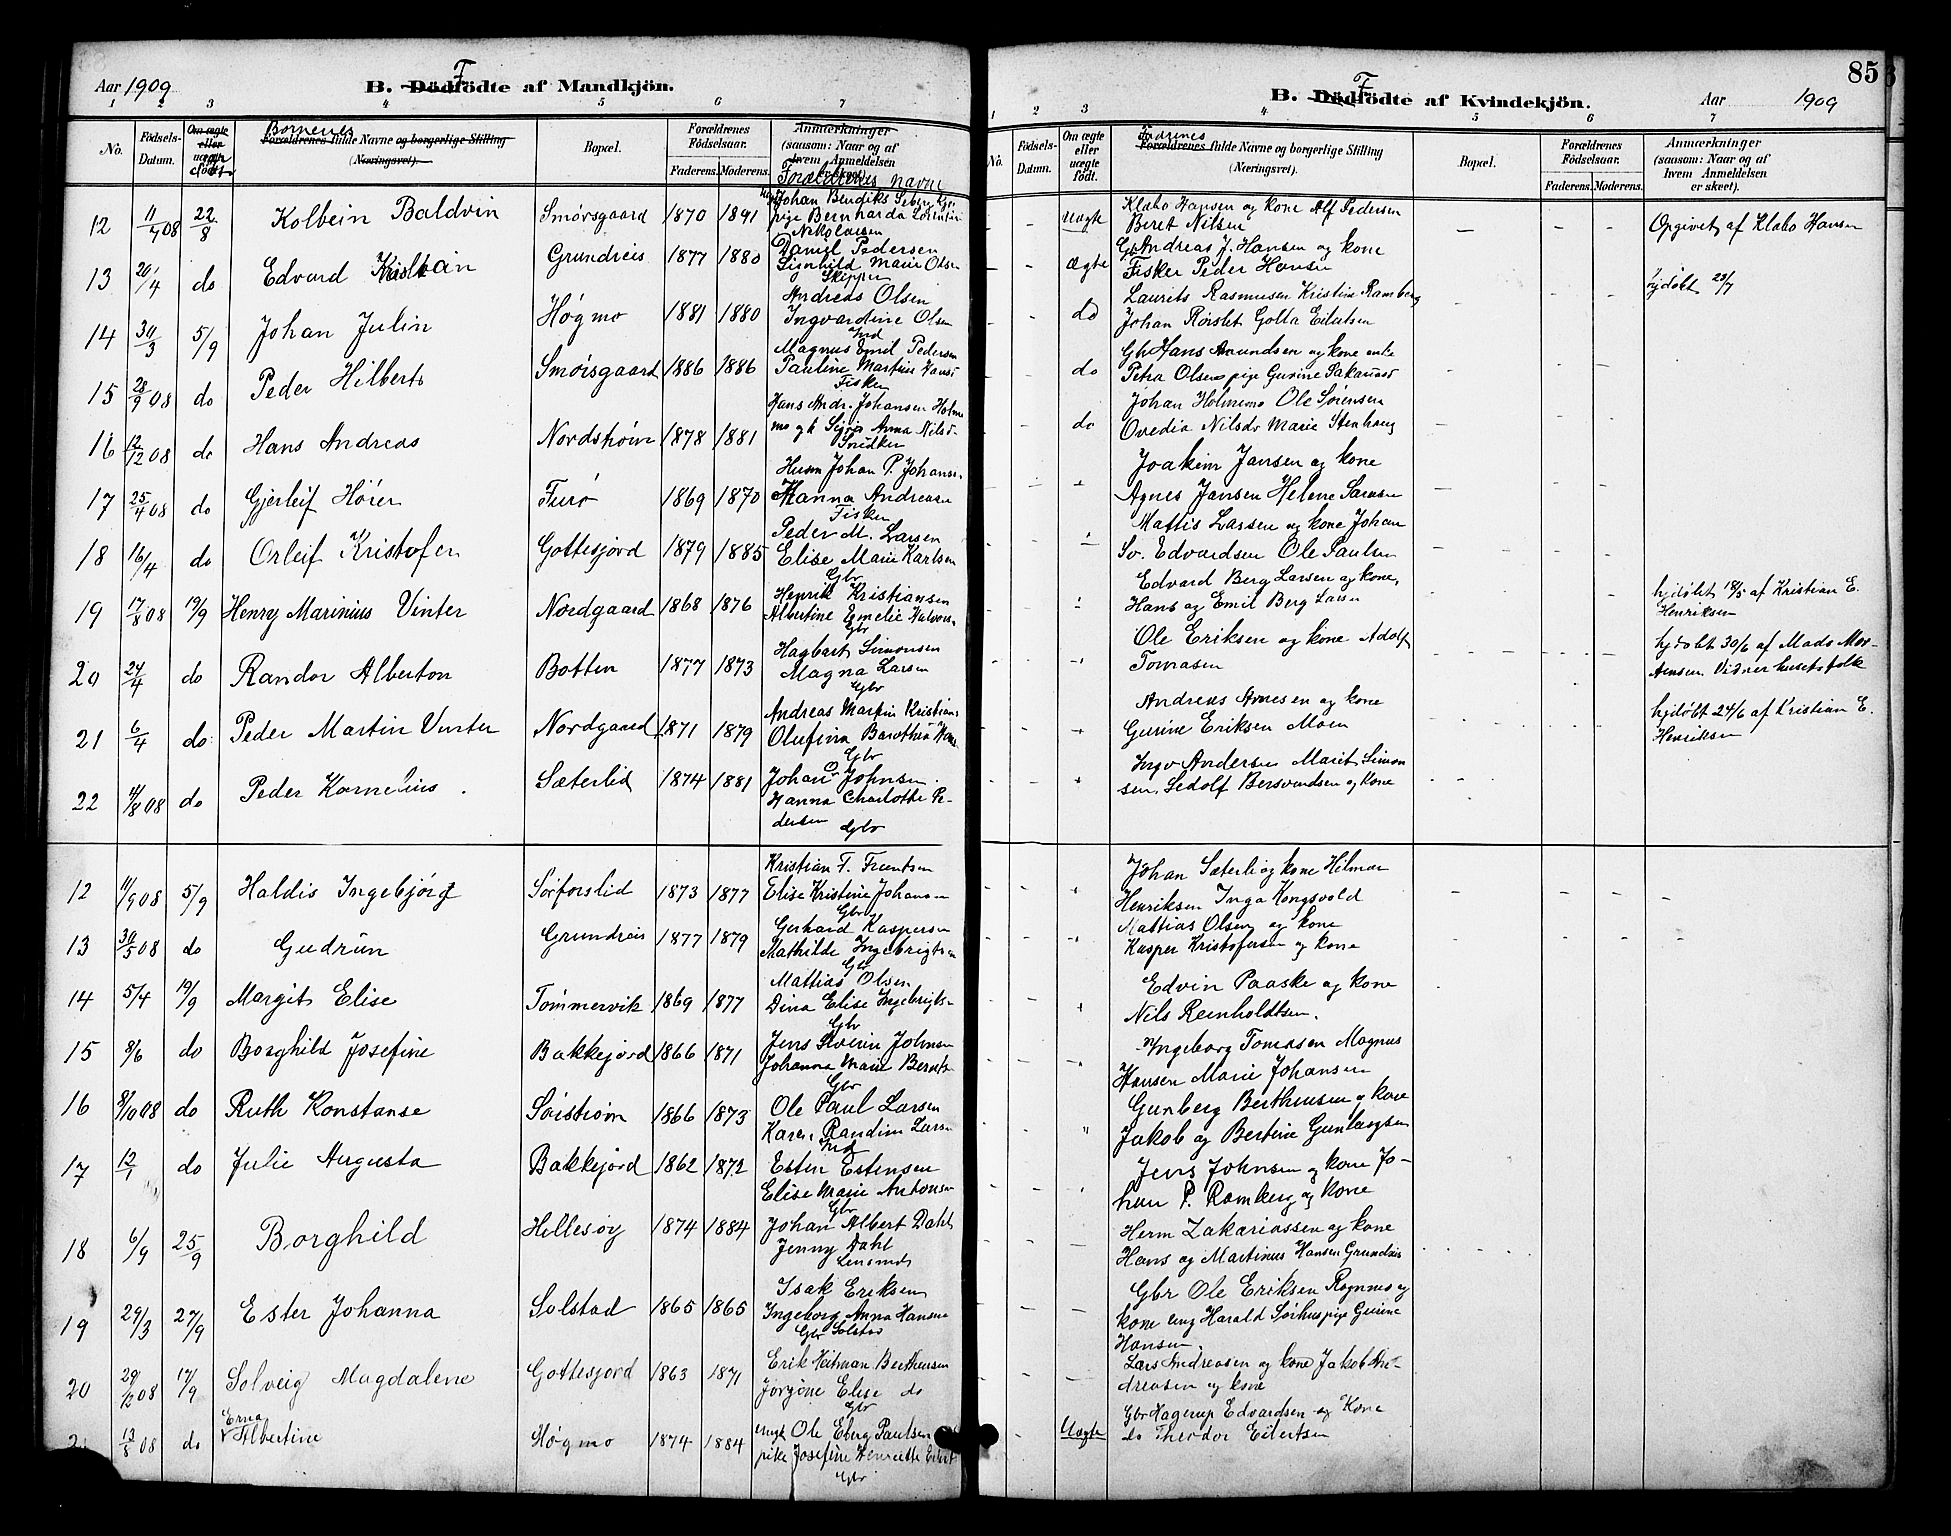 Aar 1909
B. Dödfödte af Mandkjön.
F
1 2 3 4 5 6 7
No.
Fødsels-Datum.
Om ægte eller uægte født.
Børnenes
Forældrenes fulde Navne og borgerlige Stilling (Næringsvei).
Bopæl.
Forældrenes Fødselsaar.
Faderens. Moderens.
Anmærkninger (saasom: Naar og af hvem Anmeldelsen er skeet).
Forældrenes navne
12 11/4 08 22/8 Kolbein Baldvin Smørsgaard 1870 1891 Johan Bendiks
pige Bernharda
Nikolaisen
13 20/4 do Edvard Kristian Grundreis 1877 1880 Daniel Pedersen
Signhild Marie Olsen
Skipper
14 30/3 5/9 Johan Julin Høgmo 1881 1880 Andreas Olsen
Ingvardine Olsen
Ind
15 28/9 08 do Peder Hilberts Smørsgaard 1886 1886 Magnus Emil Pedersen
Pauline Martin Hansd
Fisker
16 12/12 08 do Hans Andreas Nordstrøm 1878 1881 Hans Andr. Johansen Holm
mo gk Sigrid Anna Nilsd-
Snidker
17 25/4 08 do Gjerleif Hörer Furö 1869 1870 Husm Johan P. Johans.
Hanna Andreasen
Fisker
18 16/4 do Orleif Kristofer Gottesjord 1879 1885 Peder M. Larsen
Elise Marie Karlsen
Gbr
19 17/8 08 19/9 Henry Marinius Vinter Nordgaard 1868 1876 Henrik Kristiansen
Albertine Emelie Halvors.
Gbr
20 24/4 do Randor Alberton Botten 1877 1873 Hagbart Simonsen
Magna Larsen
Gbr
21 6/4 do Peder Martin Vinter Nordgaard 1871 1879 Andreas Martin Kristian.
Olufina Barothea Hans
Gbr
22 11/8 08 do Peder Kornelius Sæterlid 1874 1881 Johan O Johnsen.
Hanna Charlotte Pe-
dersen Gbr
12 11/9 08 5/9 Haldis Ingebjørg Sørforslid 1873 1877 Kristian F. Frentsen
Elise Kristine Johansen
Gbr
13 30/5 08 do Gudrun Grundreis 1877 1879 Gerhard Kaspersen
Mathilde Ingebrigtsen
Gbr
14 5/4 19/9 Margit Elise Tømmervik 1869 1877 Mattias Olsen
Dina Elise Ingebrigts-
Gbr
15 8/6 do Borghild Josefine Bakkejord 1866 1871 Jens Severin Johnsen
Johanna Marie Bernts-
Gbr
16 8/10 08 do Ruth Konstanse Sørstrøm 1866 1873 Ole Paul Larsen
Karen Randine Larsen
Ind
17 12/1 do Julie Augusta Bakkejord 1862 1872 Esten Estensen
Elise Marie Antonsen
Gbr
18 6/9 25/9 Borghild Hillesøy 1874 1884 Johan Albert Dahl
Jenny Dahl
Lensmd
19 29/3 27/9 Ester Johanna Solstad 1865 1865 Isak Eriksen
Ingeborg Anna Hansen
Gbr Solstad
20 29/12 08 17/9 Solveig Magdalene Gottesjord 1863 1871 Erik Heitman Berthensen
Jørgine Elise do
Gbr
2 13/8 08 do Erna
Albertine Høgmo 1874 1884 Uægt Ole Eberg Paulsen
pike Josefine Henriette Eilert
Gbr
B. Dödfödte af Kvindekjön.
F
Aar 1909
85
1 2 3 4 5 6 7
No.
Fødsels-Datum.
Om ægte eller uægte født.
Fadrenes
Forældrenes fulde Navne og borgerlige Stilling (Næringsvei).
Bopæl.
Forældrenes Fødselsaar.
Faderens. Moderens.
Anmærkninger (saasom: Naar og af hvem Anmeldelsen er skeet).
Uægte Klabo Hansen og kone Alf Pedersen
Beret Nilsen Opgivet af Klabo Hansen
Ægte Gbr Andreas J. Hansen og kone
Fisker Peder Hansen hjdøbt 23/7
do Laurits Rasmusen Kristine Ramberg
Johan Rörslet Golla Eilutsen
do Gbr Hans Amundsen og kone enke
Petra Olsen pige Gurine Sakariasd
do Johan Holmemo Ole Sørensen
Ovedia Nilsdr Marie Stenhaug
Joakim Jansen og kone
Agnes Jansen Helene Larsen
Mattis Larsen og kone Johan
Sv. Edvardsen Ole Paulsen
Edvard Berg Larsen og kone,
Hans og Emil Berg Larsen hjdøbt 18/5 af Kristian E.
Henriksen
Ole Eriksen og kone Adolf
Tomasen hjdøbt 30/6 af Mads Mor-
tensen. Vidner husets folk
Andreas Arnesen og kone
Gurine Eriksen Moen hjdøbt 24/6 af Kristian E.
Henriksen
Ingv Andersen Marit Simon
sen. Sedolf Bersvendsen og kone
Johan Sæterli og kone Hilmar
Henriksen Inga Kongsvold
Mattias Olsen og kone
Kasper Kristofersen og kone
Edvin Paaske og kone
Nils Reinholdtsen.
Ingeborg Tomasen Magnus
Hansen Marie Johansen
Gunberg Berthensen og kone
Jakob og Bertine Gunbergsen
Jens Johnsen og kone Jo-
han P. Ramberg og kone
Herm Zakariassen og kone
Hans og Martinus Hansen Grundreis
Gbr Ole Eriksen Rognmo og
kone ung Harald Sørhus pige Gurine
Hansen.
Lars Andreasen og kone Jakob An-
dreasen og kone
Uægte Gbr Hagerup Edvardsen og Kone
do Theodor Eilertsen